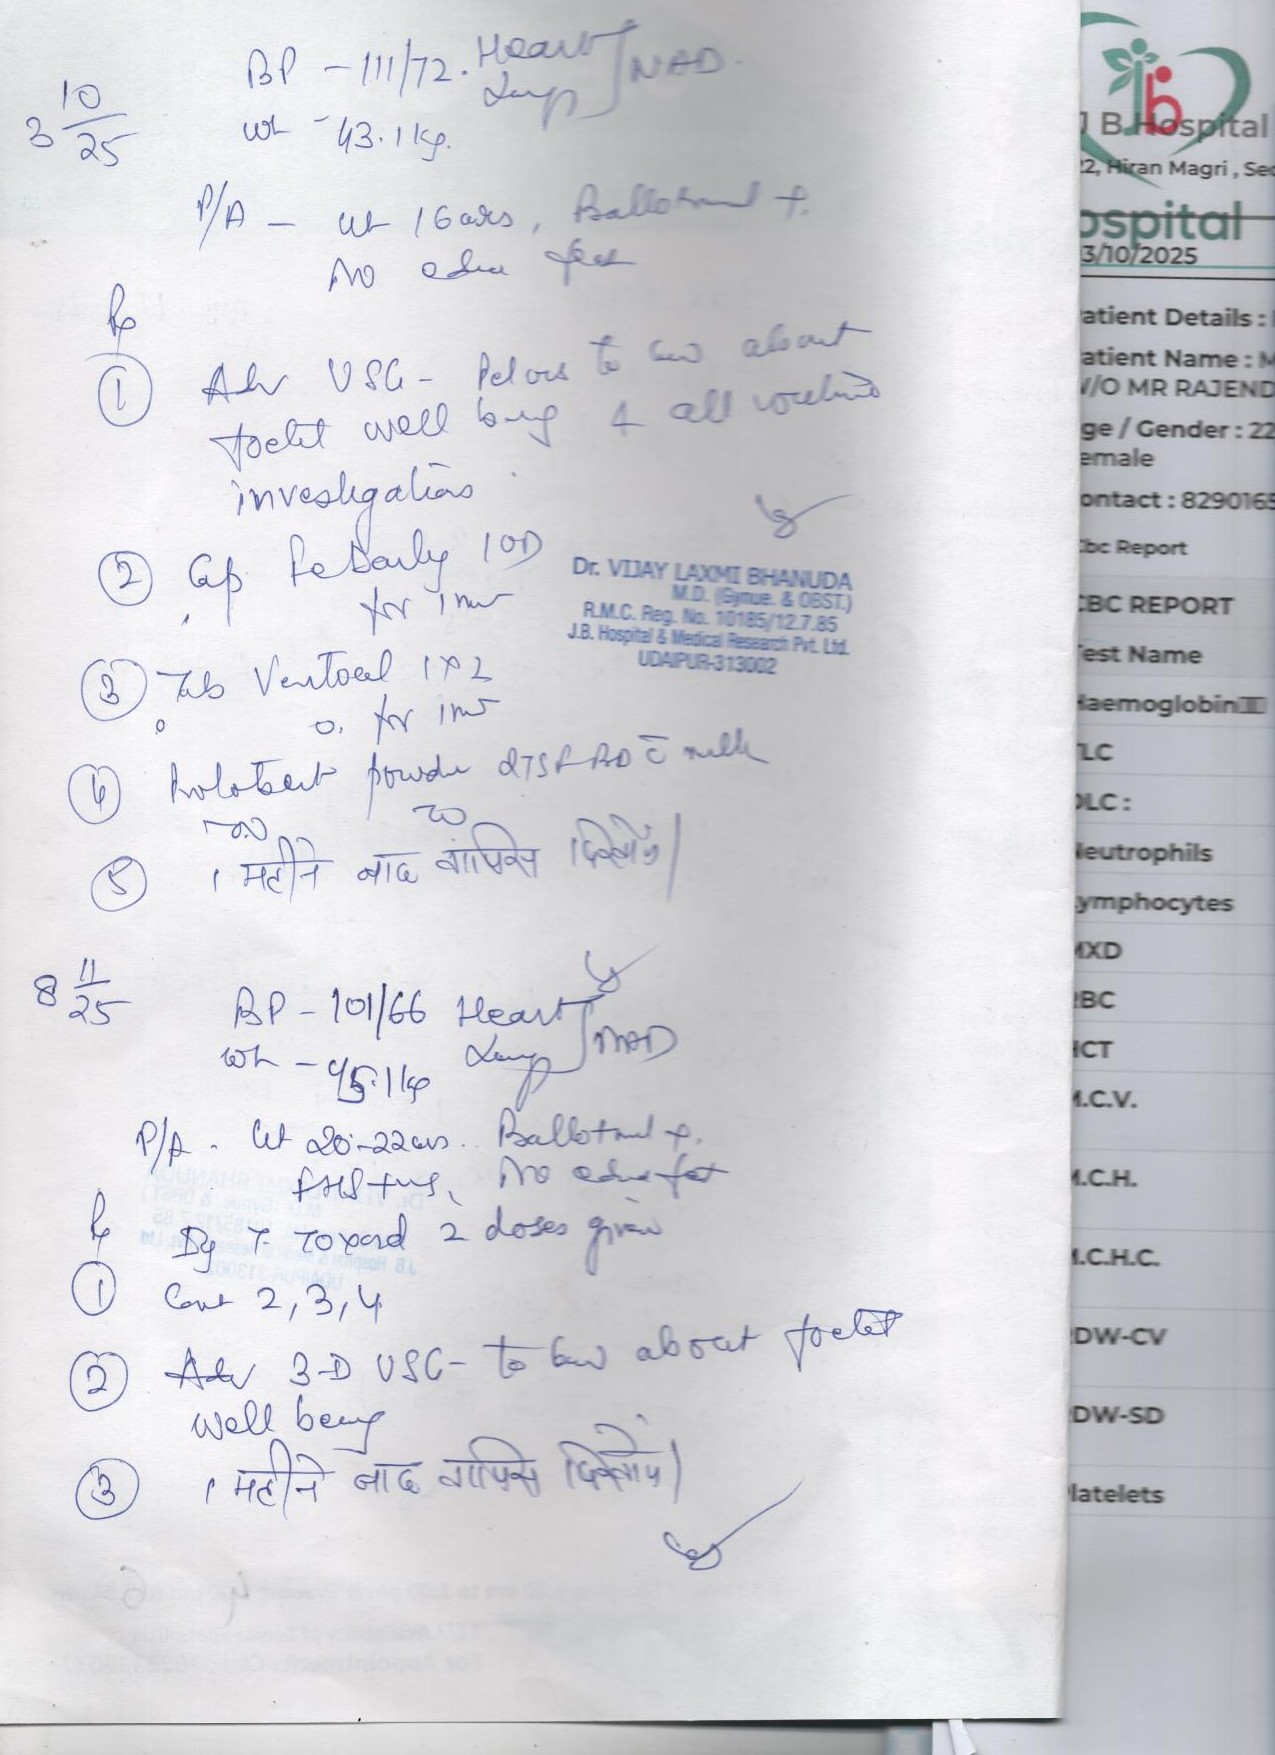 3 10/25
BP - 111/72. Heart
Lungs } NAD.
wt - 43.1 kg.
P/A - ut 16 wks, Ballotment +.
No edema feet
Rx
① Adv USG - Pelvis to know about
foetal well being & all routine
investigations
② Cap 1 OD
for 1 mt
③ Tab 1 x 2
for 1 mt
④ powder 2TSF BD c̄ milk
⑤ 1 महीने बाद वापिस दिखायें।
Dr. VIJAY LAXMI BHANUDA
M.D. (Gynue. & OBST.)
R.M.C. Reg. No. 10185/12.7.85
J.B. Hospital & Medical Research Pvt. Ltd.
UDAIPUR-313002
8 11/25
BP - 101/66 Heart
Lungs } NAD
wt - 45.1 kg
P/A - ut 20-22 wks. Ballotment +.
No edema feet
Rx 2 doses given
① Cont 2, 3, 4
② Adv 3-D USG - to know about foetal
well being
③ 1 महीने बाद वापिस दिखायें।
J B Hospital
22, Hiran Magri , Sec
ospital
3/10/2025
atient Details :
atient Name : M
W/O MR RAJEND
ge / Gender : 22
emale
ontact : 8290165
Cbc Report
CBC REPORT
Test Name
Haemoglobin
TLC
DLC :
Neutrophils
Lymphocytes
MXD
RBC
HCT
M.C.V.
M.C.H.
M.C.H.C.
RDW-CV
RDW-SD
Platelets